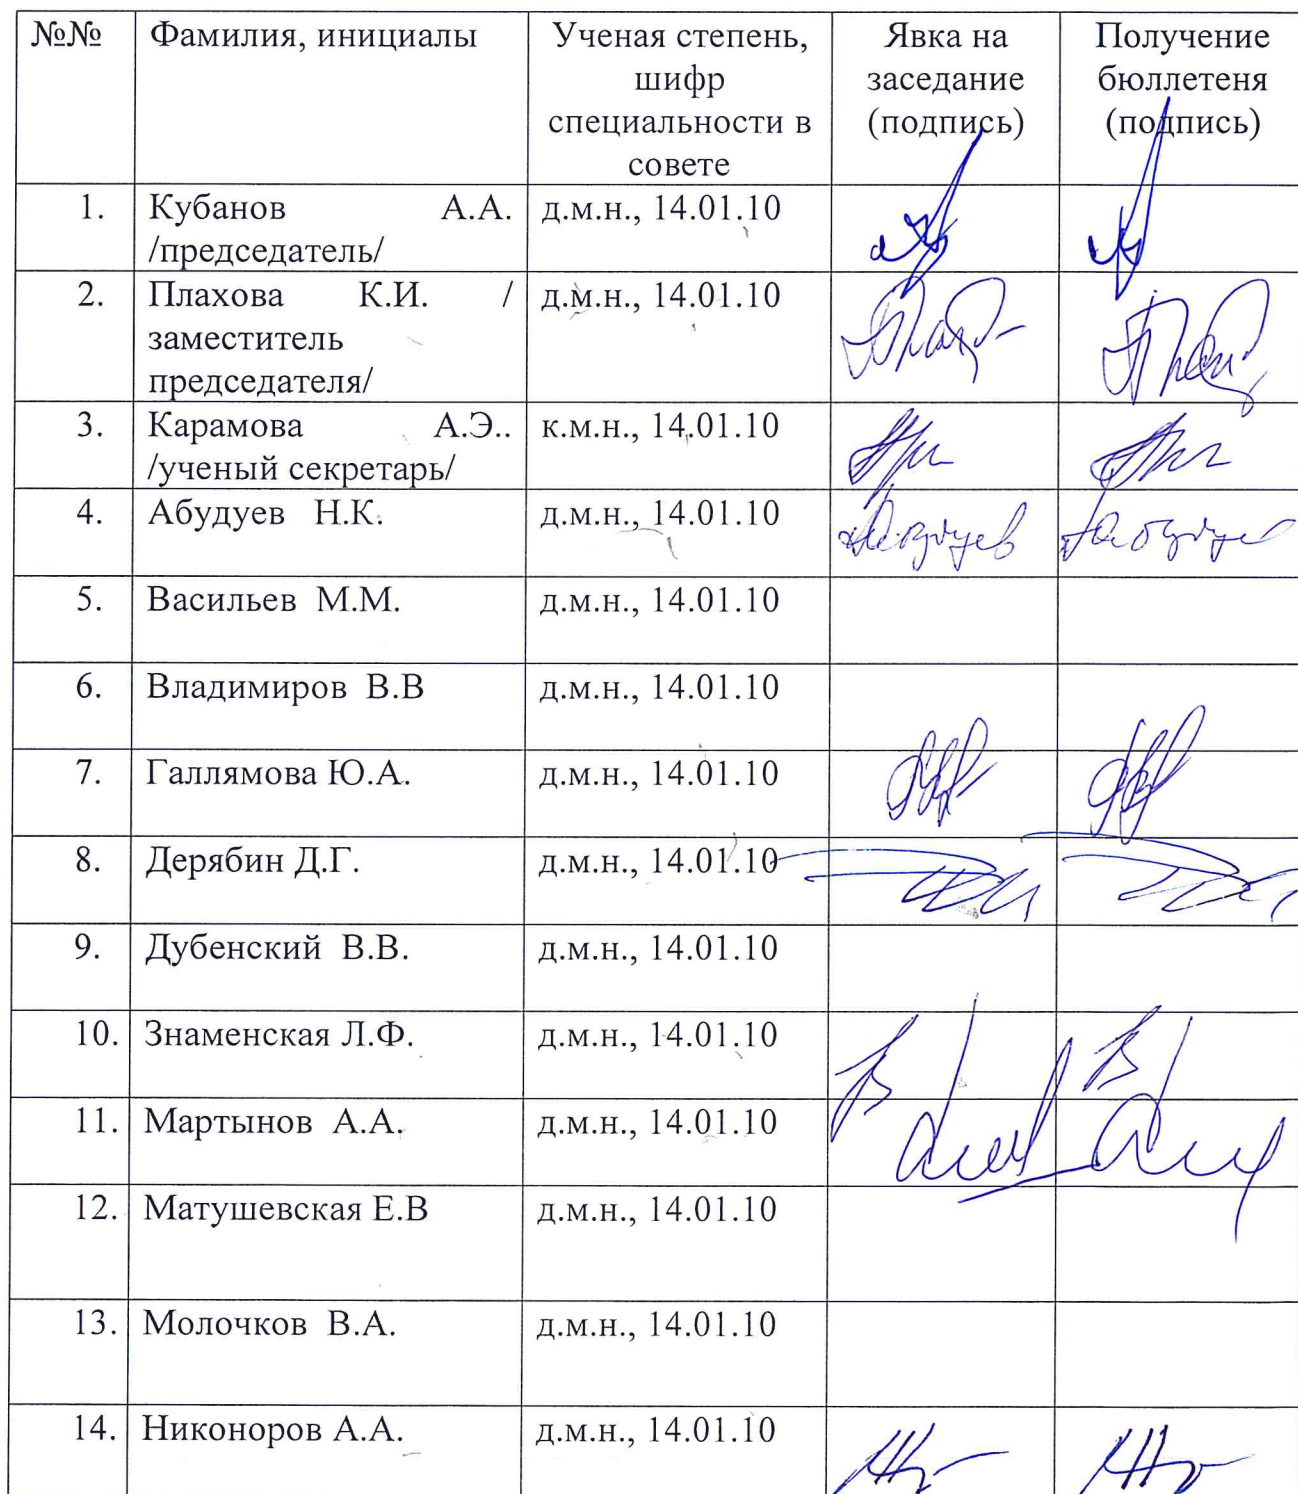 №№ Фамилия, инициалы Ученая степень, шифр специальности в совете Явка на заседание (подпись) Получение бюллетеня (подпись)
1. Кубанов А.А. д.м.н., 14.01.10
/председатель/
2. Плахова К.И. / д.м.н., 14.01.10
заместитель
председателя/
3. Карамова А.Э.. к.м.н., 14.01.10
/ученый секретарь/
4. Абудуев Н.К. д.м.н., 14.01.10
5. Васильев М.М. д.м.н., 14.01.10
6. Владимиров В.В д.м.н., 14.01.10
7. Галлямова Ю.А. д.м.н., 14.01.10
8. Дерябин Д.Г. д.м.н., 14.01.10
9. Дубенский В.В. д.м.н., 14.01.10
10. Знаменская Л.Ф. д.м.н., 14.01.10
11. Мартынов А.А. д.м.н., 14.01.10
12. Матушевская Е.В д.м.н., 14.01.10
13. Молочков В.А. д.м.н., 14.01.10
14. Никоноров А.А. д.м.н., 14.01.10